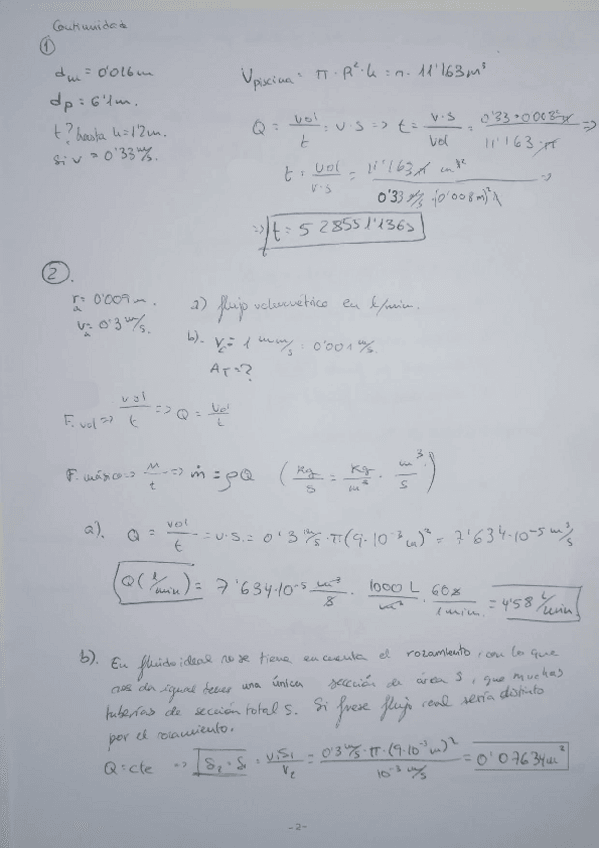 Continuidad
①
d_m = 0'016 m
d_p = 6'1 m.
t? hasta h = 1'2 m.
Si v = 0'33 m/s.
V_piscina = π · R² · h = π · 11'163 m³
Q = vol/t = v · s => t = v·s/vol = 0'33 · 0'008² π/11'163 · π =>
t = vol/v·s = 11'163 π m³/0'33 m/s · (0'008 m)² π =>
=> t = 528551'136 s
②.
r_a = 0'009 m.
v_a = 0'3 m/s.
a) flujo volumétrico en l/min.
b). v_c = 1 mm/s = 0'001 m/s.
A_T = ?
F. vol => vol/t => Q = vol/t
F. másico => M/t => ṁ = ρQ (kg/s = kg/m³ · m³/s)
a). Q = vol/t = v·s = 0'3 m/s · π (9·10⁻³ m)² = 7'634·10⁻⁵ m³/s
Q (l/min) = 7'634·10⁻⁵ m³/s · 1000 L/m³ · 60 s/1 min. = 4'58 L/min
b). En fluido ideal no se tiene en cuenta el rozamiento, con lo que
nos da igual tener una única sección de área S, que muchas
tuberías de sección total S. Si fuese flujo real sería distinto
por el rozamiento.
Q = cte => S₂ = v₁S₁/v₂ = 0'3 m/s · π · (9·10⁻³ m)²/10⁻³ m/s = 0'07634 m²
-2-